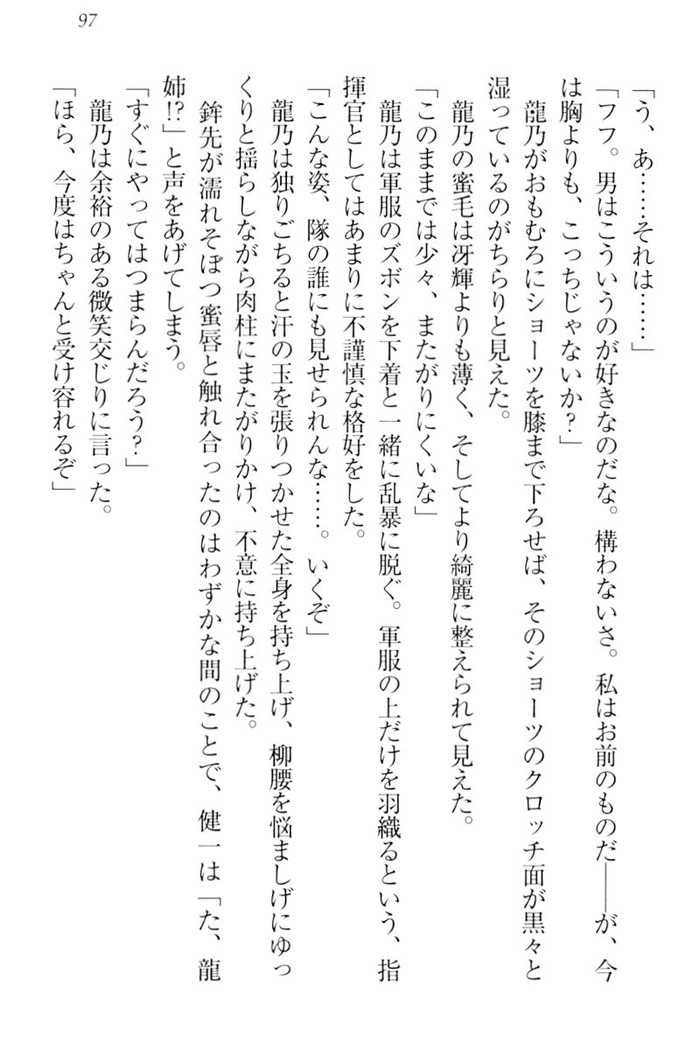 97
「う、あ……それは……」
「フフ。男はこういうのが好きなのだな。構わないさ。私はお前のものだ――が、今
は胸よりも、こっちじゃないか？」
龍乃がおもむろにショーツを膝まで下ろせば、そのショーツのクロッチ面が黒々と
湿っているのがちらりと見えた。
龍乃の蜜毛は冴輝よりも薄く、そしてより綺麗に整えられて見えた。
「このままでは少々、またがりにくいな」
龍乃は軍服のズボンを下着と一緒に乱暴に脱ぐ。軍服の上だけを羽織るという、指
揮官としてはあまりに不謹慎な格好をした。
「こんな姿、隊の誰にも見せられんな……。いくぞ」
龍乃は独りごちると汗の玉を張りつかせた全身を持ち上げ、柳腰を悩ましげにゆっ
くりと揺らしながら肉柱にまたがりかけ、不意に持ち上げた。
鉾先が濡れそぼつ蜜唇と触れ合ったのはわずかな間のことで、健一は「た、龍
姉!?」と声をあげてしまう。
「すぐにやってはつまらんだろう？」
龍乃は余裕のある微笑交じりに言った。
「ほら、今度はちゃんと受け容れるぞ」